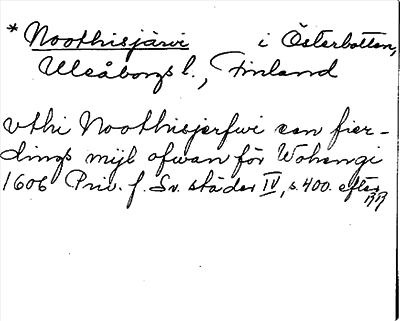 * Noothisjärvi i Österbotten,
Uleåborgs l., Finland
vthi Noothisjerfwi een fier-
dings mijl ofwan för Wohengi
1606 Priv. f. Sv. städer IV, s. 400. efter
RR